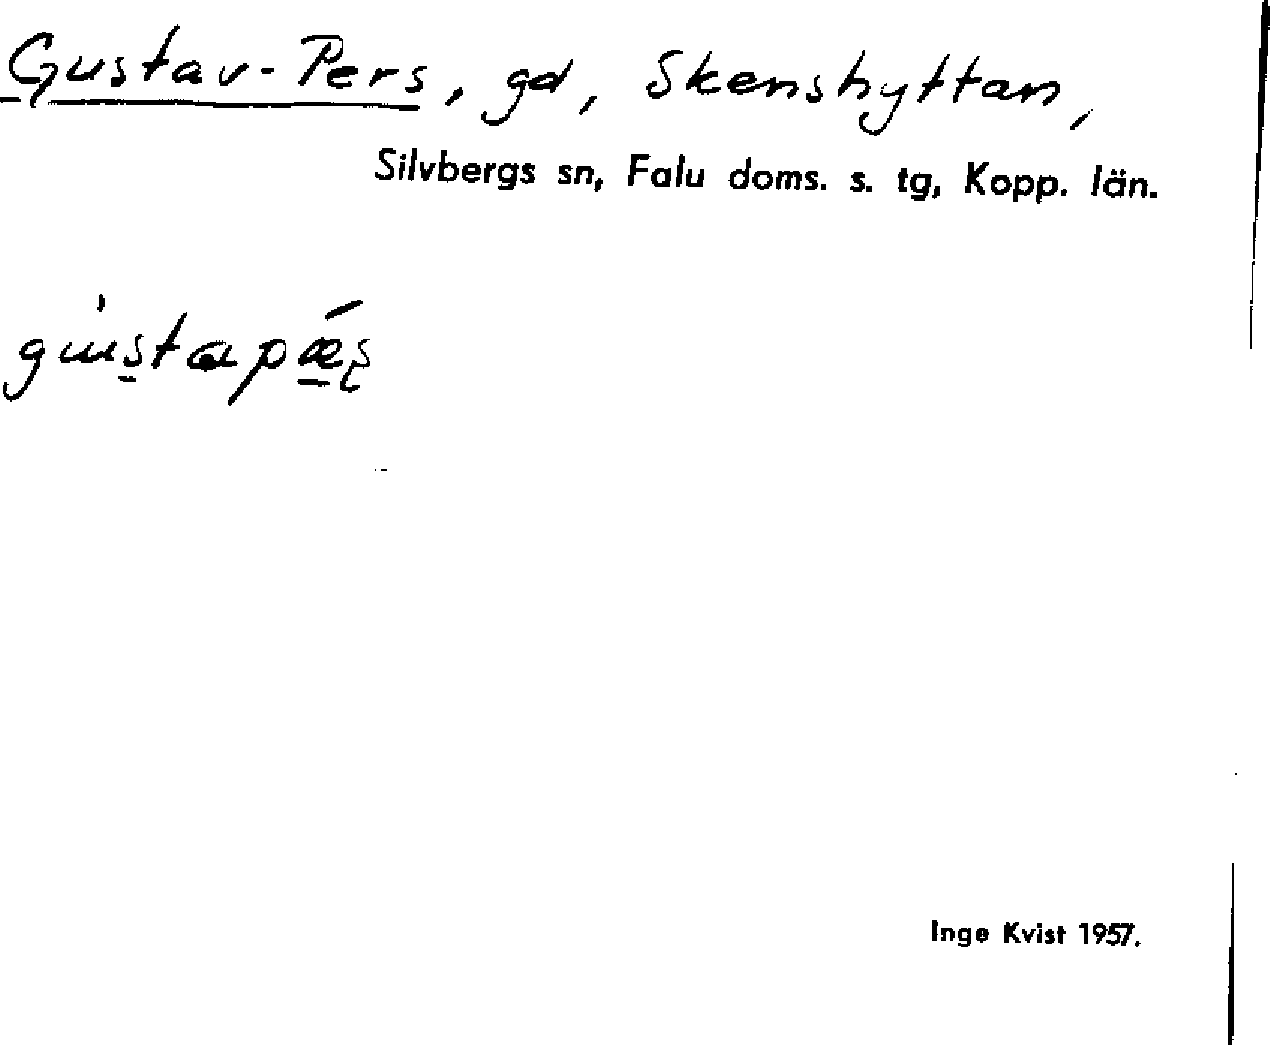 Gustav-Pers, gd, Skenshyttan,
Silvbergs sn, Falu doms. s. tg, Kopp. län.
Inge Kvist 1957.